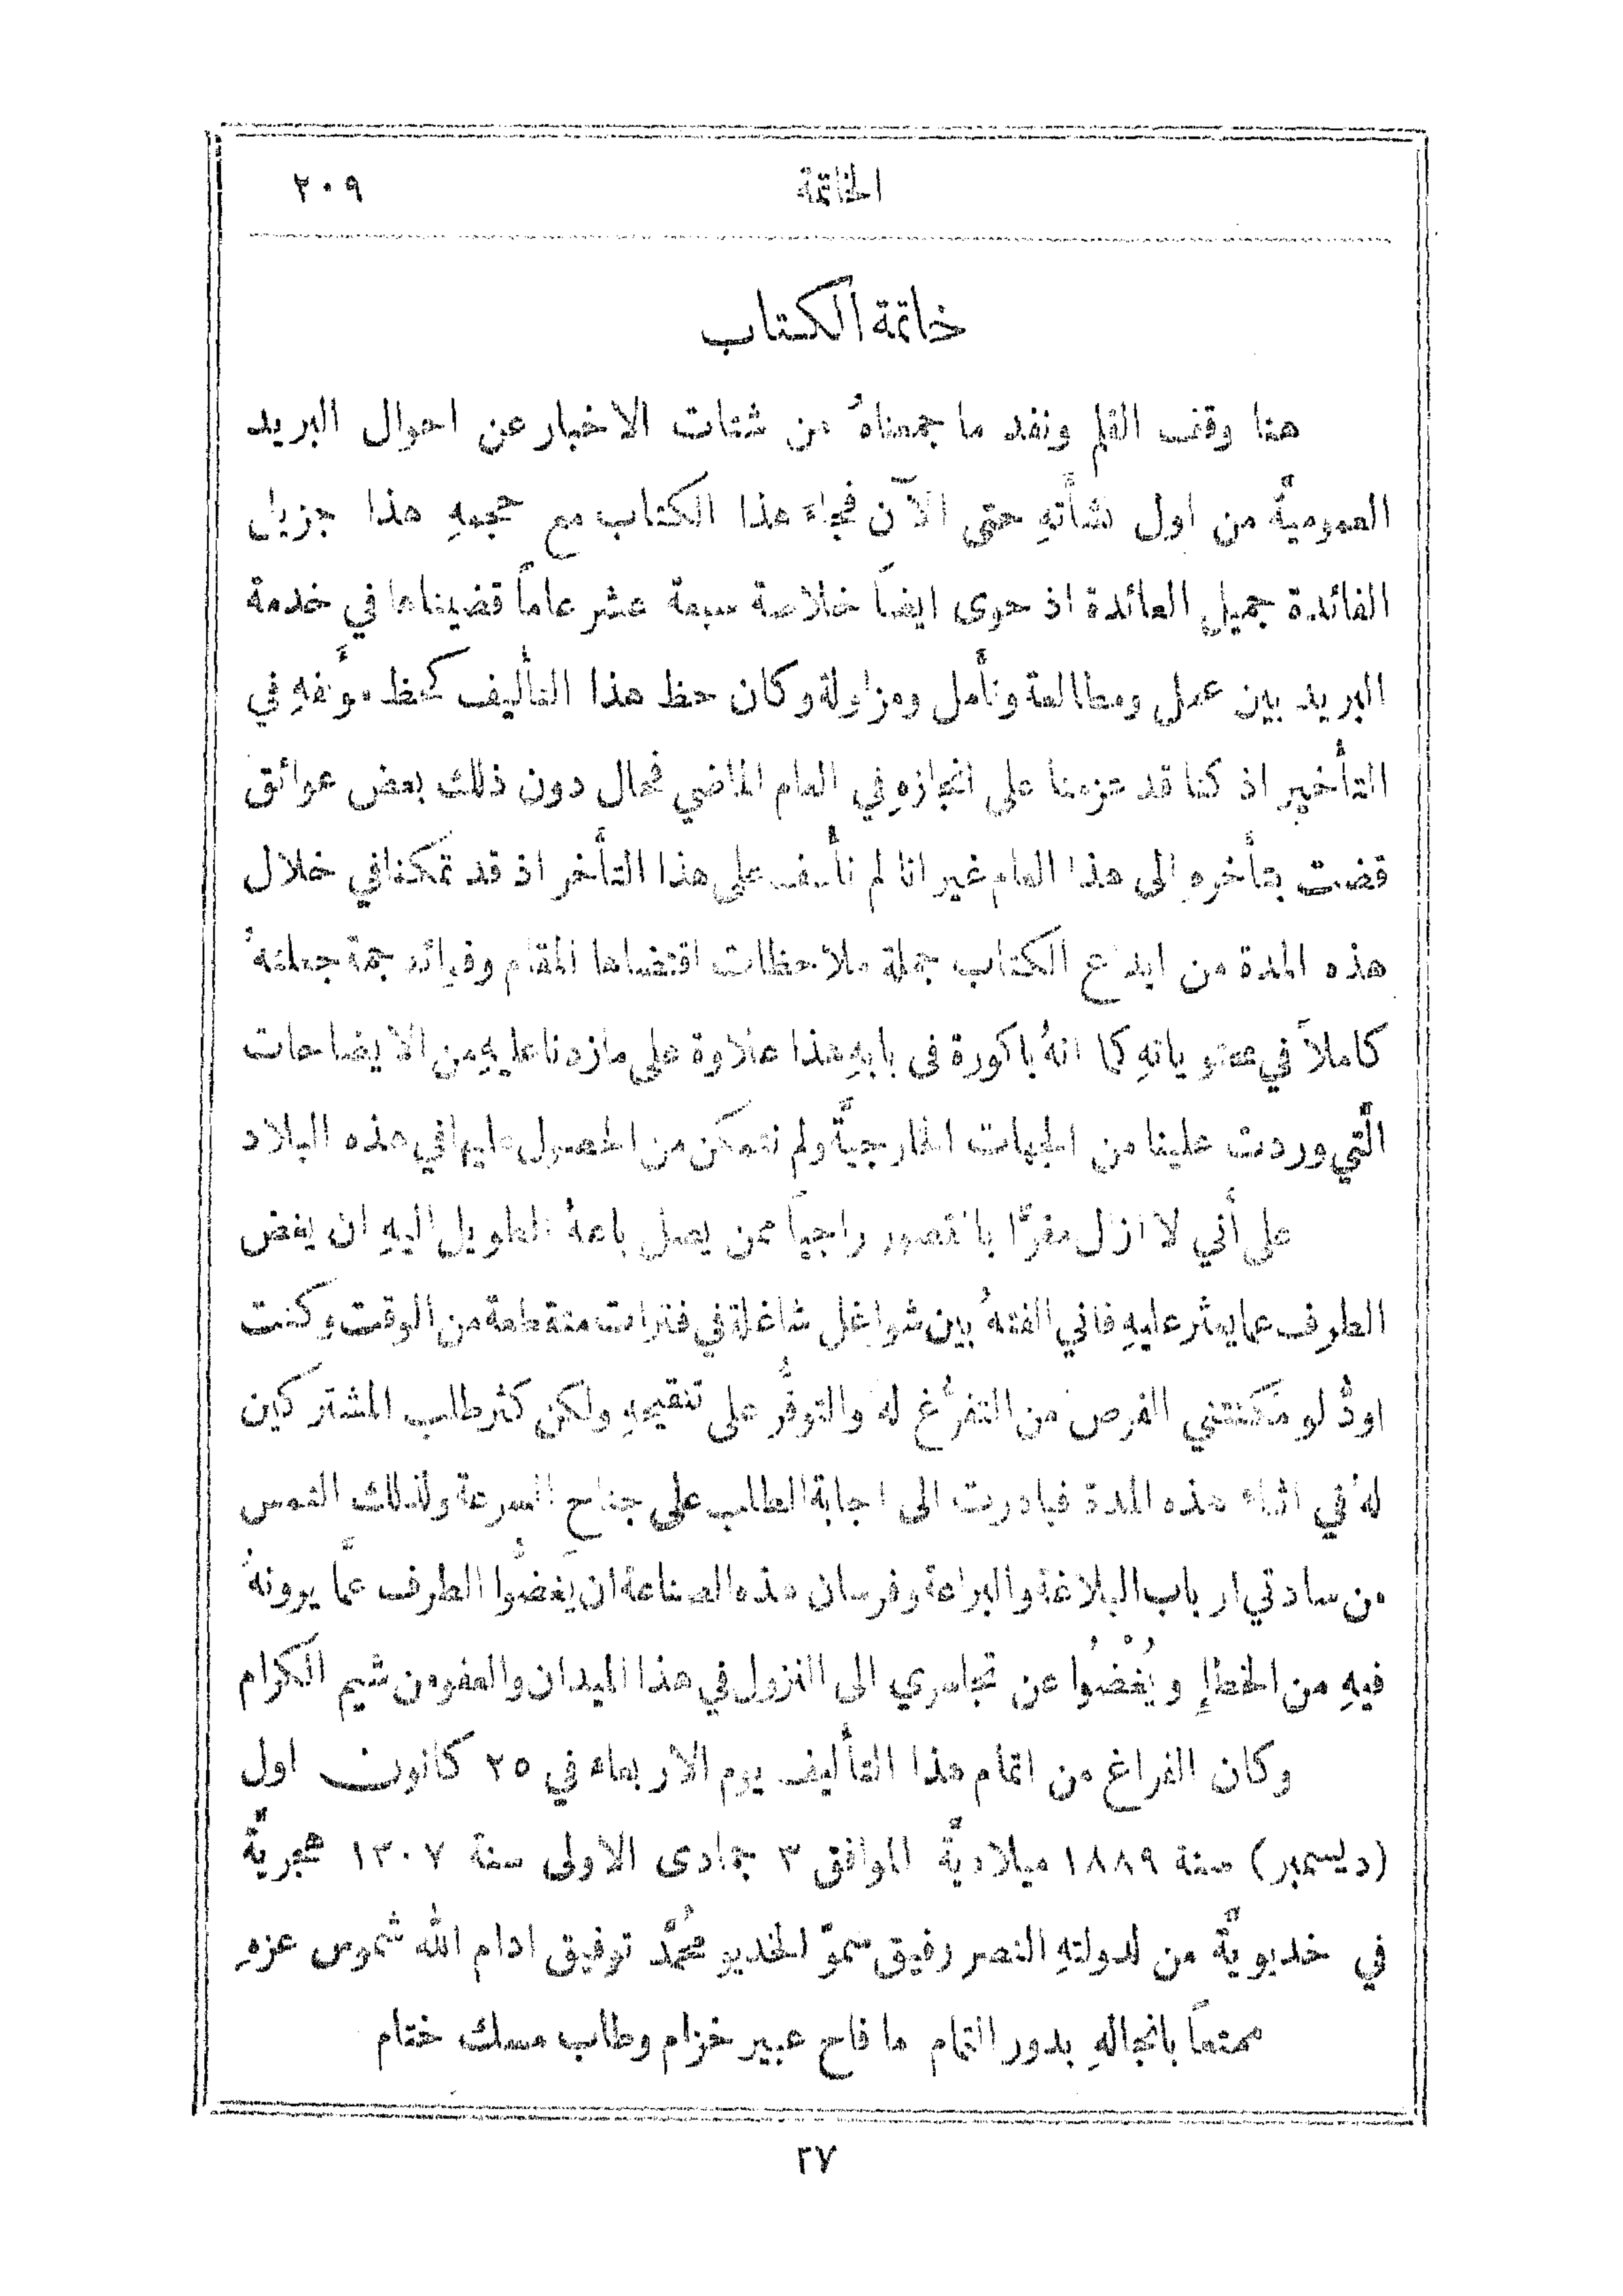 الخاتمة ٢٠٩
خاتمة الكتاب
هنا وقف القلم ونفد ما جمعناهُ من شتات الاخبار عن احوال البريد
العموميَّة من اول نشأتهِ حتى الآن فجاء هذا الكتاب مع حجمهِ هذا جزيل
الفائدة جميل العائدة اذ حوى ايضاً خلاصة سبعة عشر عاماً قضيناها في خدمة
البريد بين عمل ومطالعة وتأمل ومزاولة وكان حظ هذا التأليف كحظ مؤلفهِ في
التأخير اذ كنا قد عزمنا على انجازهِ في العام الماضي فحال دون ذلك بعض عوائق
قضت بتأخرهِ الى هذا العام غير انا لم نأسف على هذا التأخر اذ قد تمكنا في خلال
هذه المدة من ايداع الكتاب جملة ملاحظات اقتضاها المقام وفوائد جمة جعلتهُ
كاملاً في محتوياتهِ كما انهُ باكورة في بابهِ هذا علاوة على ما زدنا عليهِ من الايضاحات
الَّتي وردت علينا من الجهات الخارجيَّة ولم نتمكن من الحصول عليها في هذه البلاد
على أني لا ازال مقرًّا بالقصور راجياً ممن يصل باعهُ الطويل اليهِ ان يغض
الطرف عما يعثر عليهِ فاني الفتهُ بين شواغل شاغلة في فترات متقطعة من الوقت وكنت
اودُّ لو مكنتني الفرص من التفرُّغ لهُ والتوفُّر على تنقيحهِ ولكن كثر طلب المشتركين
لهُ في اثناء هذه المدة فبادرت الى اجابة الطلب على جناحِ السرعة ولذلك التمس
من سادتي ارباب البلاغة والبراعة وفرسان هذه الصناعة ان يغضُّوا الطرف عمَّا يرونهُ
فيهِ من الخطإِ ويُغْضُوا عن تجاسري الى النزول في هذا الميدان والعفو من شيم الكرام
وكان الفراغ من اتمام هذا التأليف يوم الاربعاء في ٢٥ كانون اول
(ديسمبر) سنة ١٨٨٩ ميلاديَّة الموافق ٣ جمادى الاولى سنة ١٣٠٧ هجريَّة
في خديويَّة من لدولتهِ النصر رفيق سموّ الخديو محُمَّد توفيق ادام الله شموس عزهِ
ممتعاً بانجالهِ بدور التمام ما فاح عبير خزام وطاب مسك ختام
٢٧